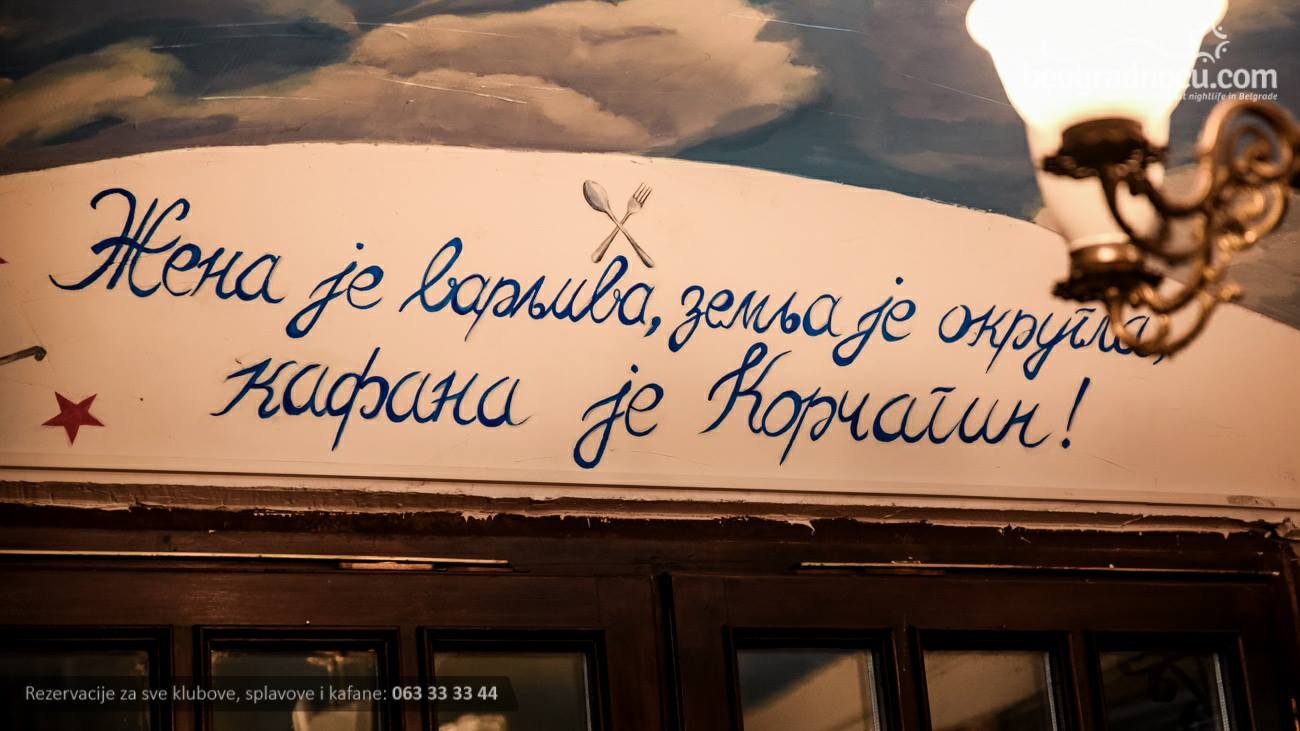 beogradnocu.com
nightlife in Belgrade
Жена је варљива, земља је округла,
кафана је Корчагин!
Rezervacije za sve klubove, splavove i kafane: 063 33 33 44